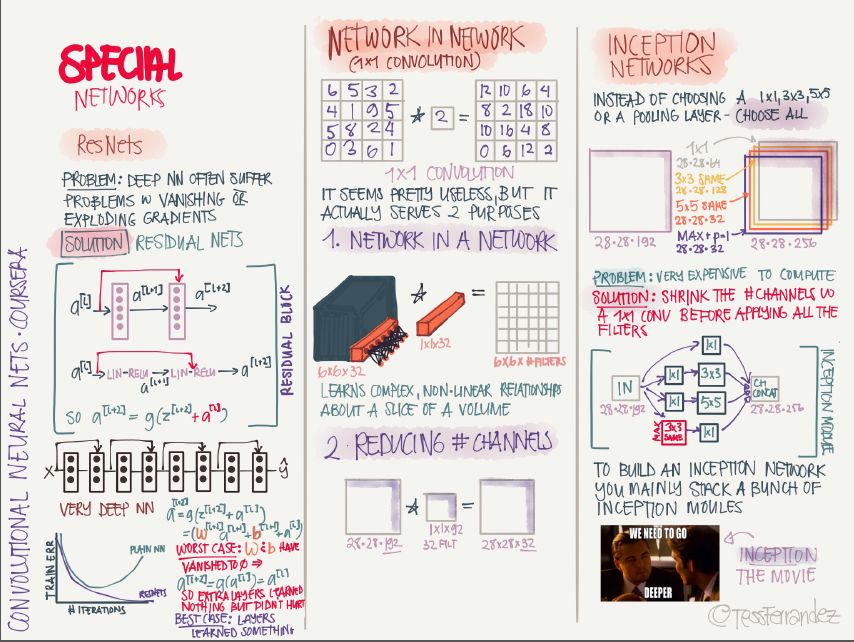 CONVOLUTIONAL NEURAL NETS · COURSERA
SPECIAL
NETWORKS
ResNets
PROBLEM: DEEP NN OFTEN SUFFER
PROBLEMS W VANISHING OR
EXPLODING GRADIENTS
SOLUTION RESIDUAL NETS
a[l] a[l+1] a[l+2]
a[l] LIN-RELU LIN-RELU a[l+2]
a[l+1]
SO a[l+2] = g(z[l+2] + a[l])
RESIDUAL BLOCK
X ŷ
VERY DEEP NN
TRAIN ERR
PLAIN NN
RESNETS
# ITERATIONS
a[l+2] = g(z[l+2] + a[l])
= (W[l+2] a[l+1] + b[l+2] + a[l])
WORST CASE: W & b HAVE
VANISHED TO 0 ⇒
a[l+2] = g(a[l]) = a[l]
SO EXTRA LAYERS LEARNED
NOTHING BUT DIDN'T HURT
BEST CASE: LAYERS
LEARNED SOMETHING
NETWORK IN NETWORK
(1x1 CONVOLUTION)
6 5 3 2 12 10 6 4
4 1 9 5 * 2 = 8 2 18 10
5 8 2 4 10 16 4 8
0 3 6 1 0 6 12 2
1X1 CONVOLUTION
IT SEEMS PRETTY USELESS, BUT IT
ACTUALLY SERVES 2 PURPOSES
1. NETWORK IN A NETWORK
* =
6x6x32 1x1x32 6x6x # FILTERS
LEARNS COMPLEX, NON-LINEAR RELATIONSHIPS
ABOUT A SLICE OF A VOLUME
2. REDUCING # CHANNELS
* =
28·28·192 1x1x192 28x28x32
32 FILT
INCEPTION
NETWORKS
INSTEAD OF CHOOSING A 1x1, 3x3, 5x5
OR A POOLING LAYER - CHOOSE ALL
1x1
28·28·64
3x3 SAME
28·28·128
5x5 SAME
28·28·32
MAX + p=1
28·28·32
28·28·192 28·28·256
PROBLEM: VERY EXPENSIVE TO COMPUTE
SOLUTION: SHRINK THE # CHANNELS W
A 1x1 CONV BEFORE APPLYING ALL THE
FILTERS
1x1
IN 1x1 3x3 CH CONCAT
28·28·192 1x1 5x5 28·28·256
MAX 3x3 SAME 1x1
INCEPTION MODULE
TO BUILD AN INCEPTION NETWORK
YOU MAINLY STACK A BUNCH OF
INCEPTION MODULES
WE NEED TO GO
DEEPER
INCEPTION
THE MOVIE
@TessFerrandez